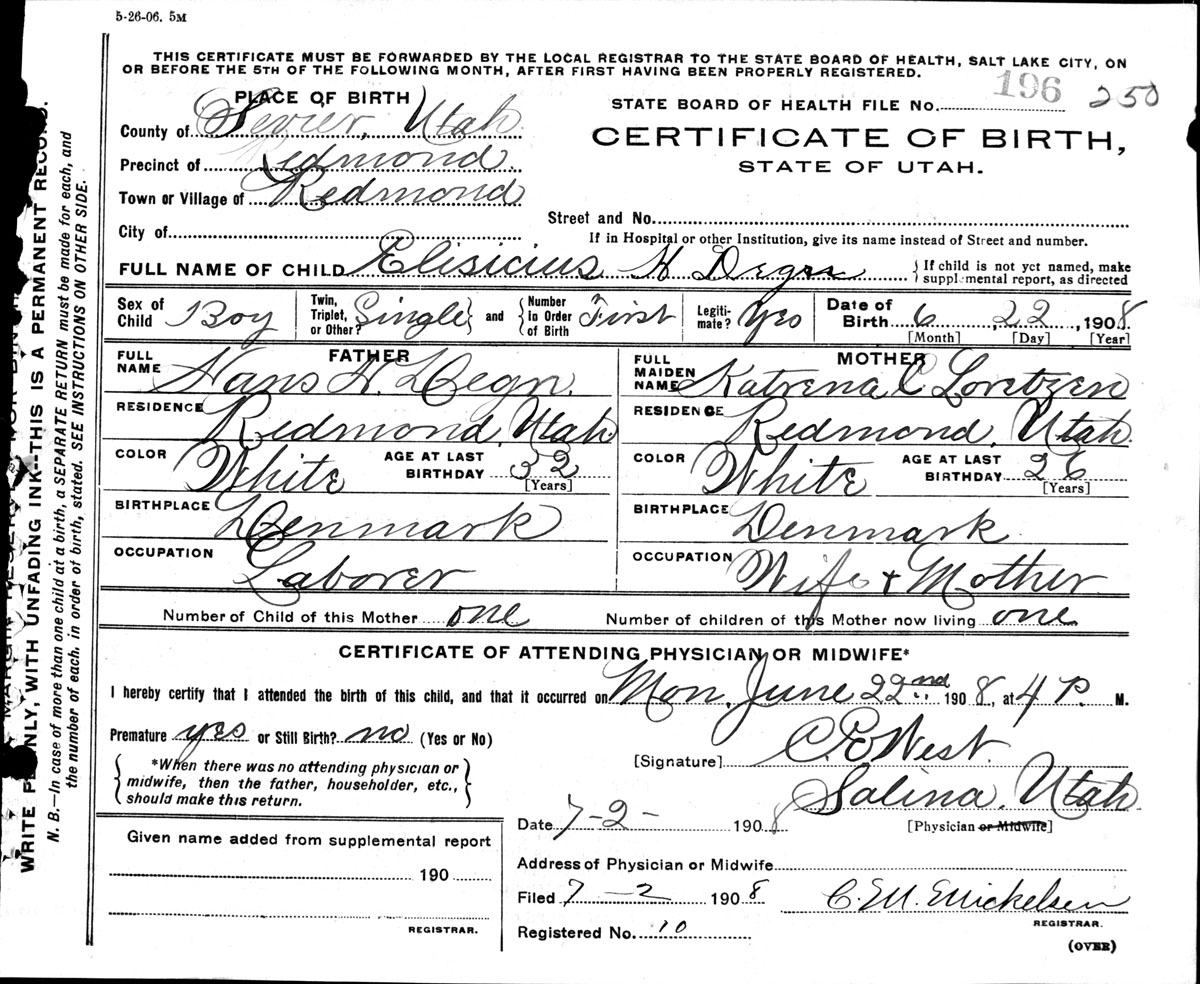 5-26-06. 5M
THIS CERTIFICATE MUST BE FORWARDED BY THE LOCAL REGISTRAR TO THE STATE BOARD OF HEALTH, SALT LAKE CITY, ON
OR BEFORE THE 5TH OF THE FOLLOWING MONTH, AFTER FIRST HAVING BEEN PROPERLY REGISTERED.
PLACE OF BIRTH
County of Sevier, Utah
Precinct of Redmond
Town or Village of Redmond
City of
STATE BOARD OF HEALTH FILE No. 196 250
CERTIFICATE OF BIRTH,
STATE OF UTAH.
Street and No.
If in Hospital or other Institution, give its name instead of Street and number.
FULL NAME OF CHILD Elisicius H
If child is not yet named, make
supplemental report, as directed
Sex of Child Boy
Twin, Triplet, or Other? Single and Number in Order of Birth First
Legiti-mate? Yes
Date of Birth 6, 22, 1908
[Month] [Day] [Year]
FATHER
FULL NAME Hans N. Degn.
RESIDENCE Redmond, Utah
COLOR White AGE AT LAST BIRTHDAY 32
[Years]
BIRTHPLACE Denmark
OCCUPATION Laborer
MOTHER
FULL MAIDEN NAME Katrena C Loretzen
RESIDENCE Redmond, Utah.
COLOR White AGE AT LAST BIRTHDAY 26
[Years]
BIRTHPLACE Denmark
OCCUPATION Wife + Mother
Number of Child of this Mother one Number of children of this Mother now living one
CERTIFICATE OF ATTENDING PHYSICIAN OR MIDWIFE*
I hereby certify that I attended the birth of this child, and that it occurred on Mon, June 22nd 1908, at 4 P. M.
Premature yes or Still Birth? no (Yes or No)
*When there was no attending physician or
midwife, then the father, householder, etc.,
should make this return.
[Signature] C. E. West.
Salina, Utah.
Date 7-2- 1908
[Physician or Midwife]
Given name added from supplemental report
190
REGISTRAR.
Address of Physician or Midwife
Filed 7-2 1908 C. M. Mickelsen
REGISTRAR.
Registered No. 10
(OVER)
WRITE ONLY, WITH UNFADING INK—THIS IS A PERMANENT RECORD.
N. B.—In case of more than one child at a birth, a SEPARATE RETURN must be made for each, and
the number of each, in order of birth, stated. SEE INSTRUCTIONS ON OTHER SIDE.